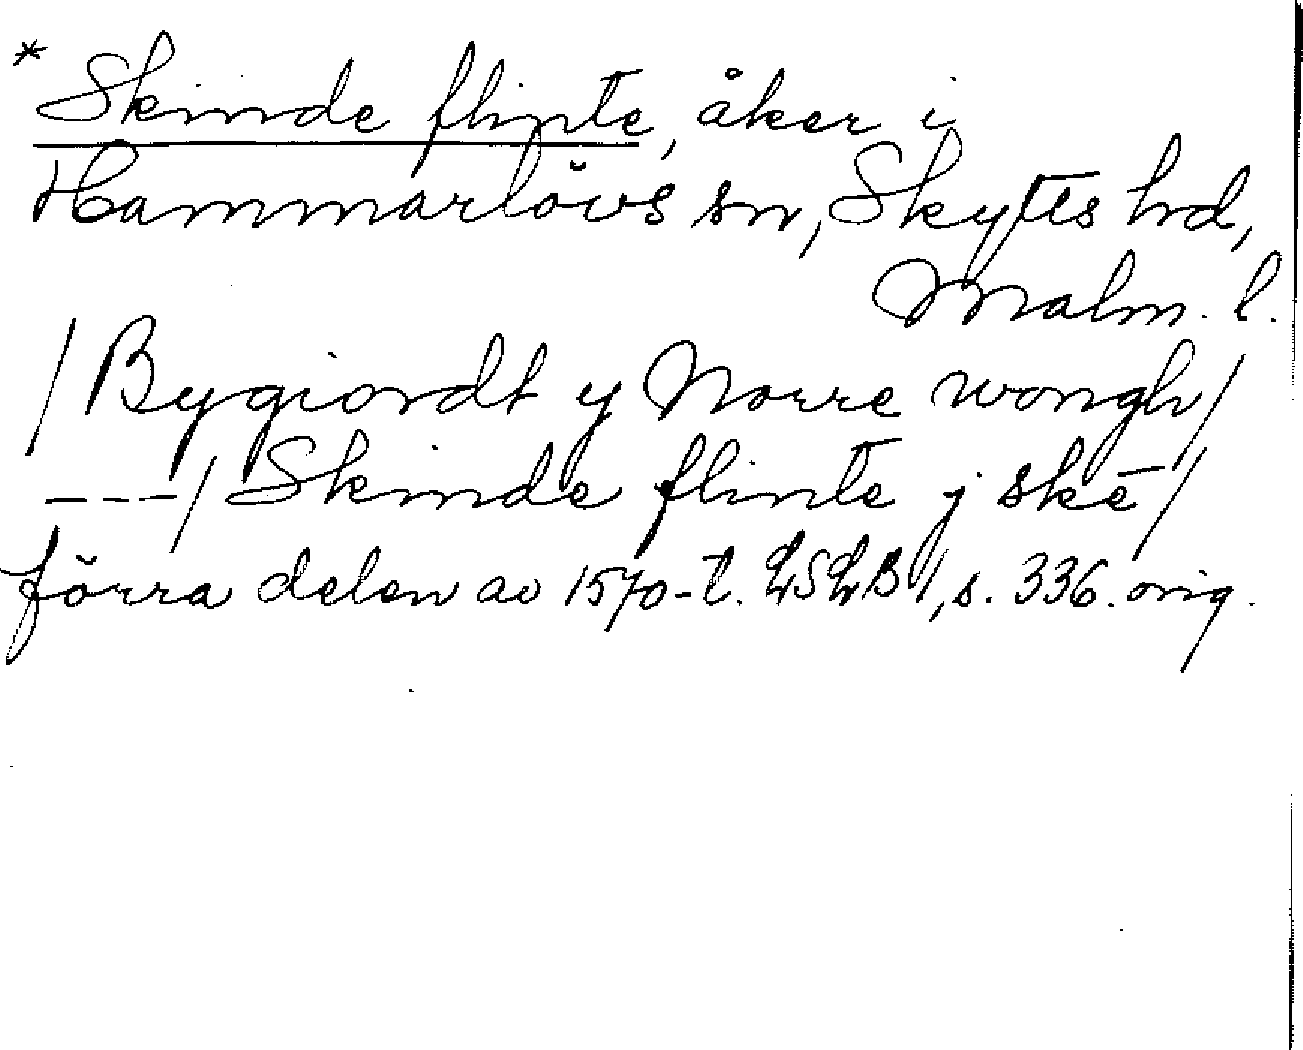 * Skinde flinte, åker i
Hammarlövs sn, Skytts hd,
Malm. l.
/Bygiordt y Norre wongh/
---/Skinde flinte j skē/
förra delen av 1570-t. LSLB 1, s. 336. orig.